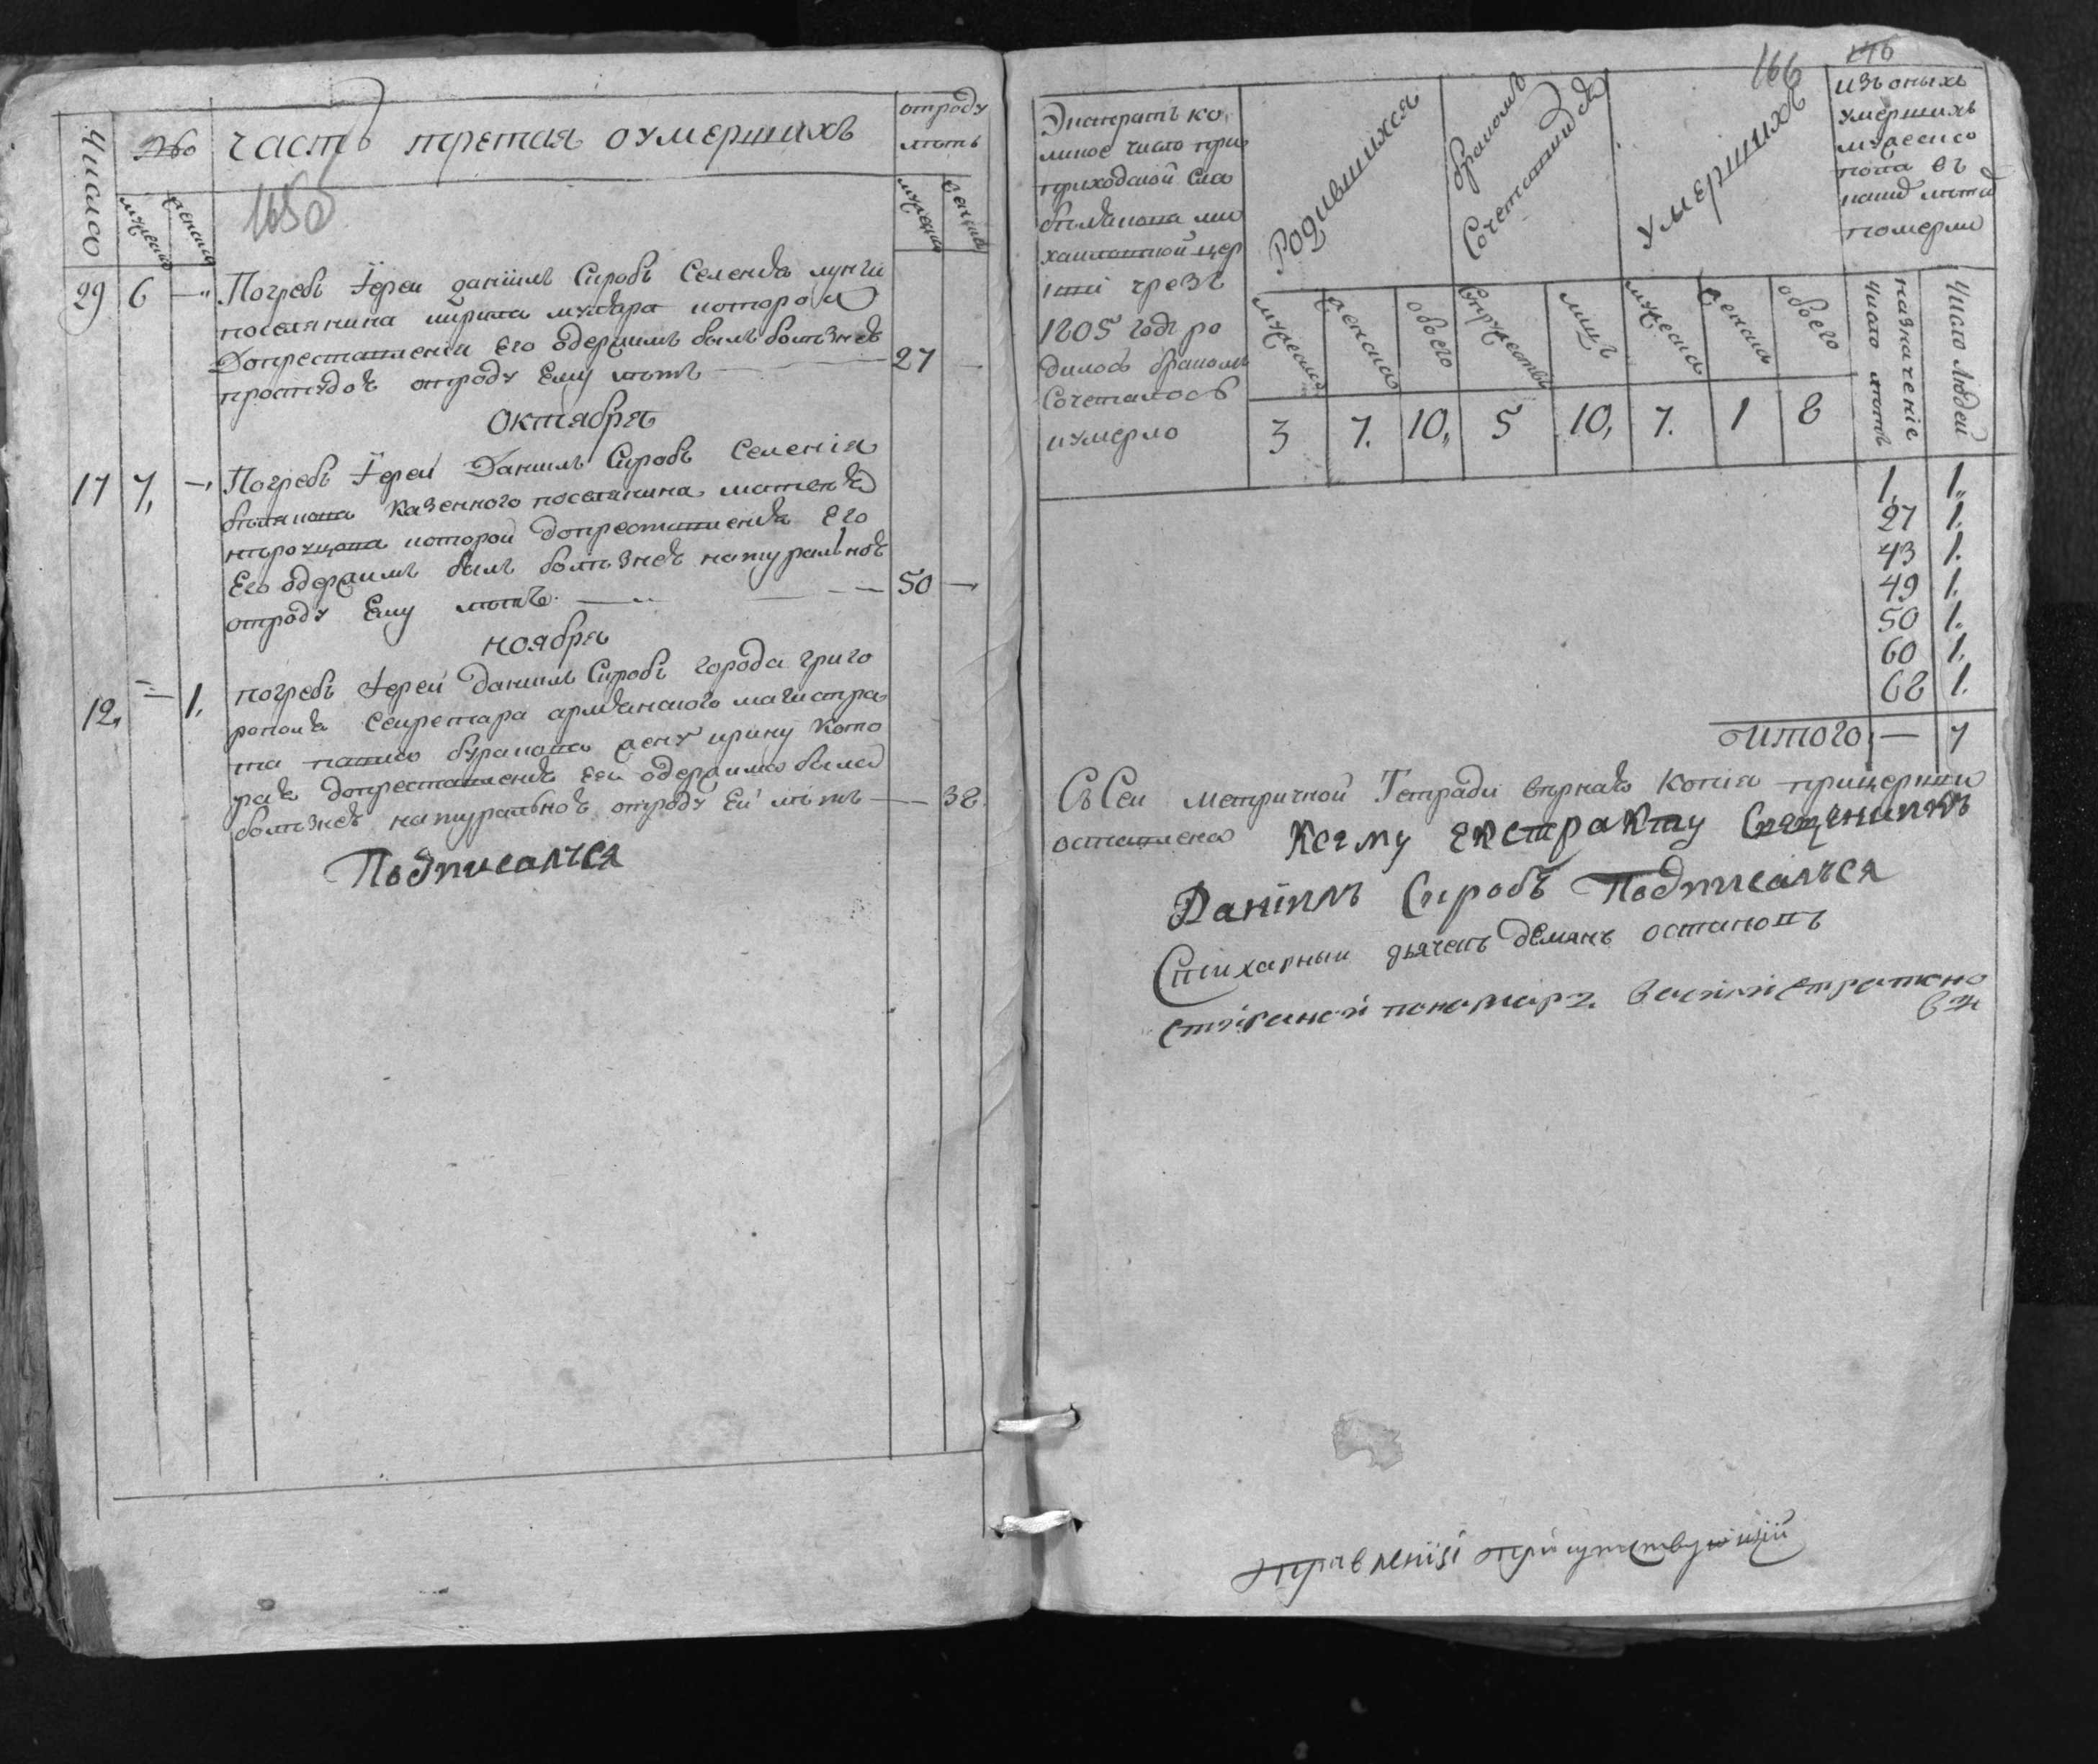 Число
№
часть третая о умершихъ
отроду
лѣтъ
мужеска
женска
165об
мужеска
женска
29 6 —
Погребъ Іереи даніилъ Сиробъ Селенія лунги
поселянина кирила мунтяра котороы
Допреставленіи Его одержимъ былъ болѣзнею
простудою отроду Ему лѣтъ — 27 —
Октября
17 7, —
Погребъ Іереи Даніилъ Сиробъ Селенія
казенного поселянина матвея
которои допреставленія Его
Его одержимъ былъ болѣзнею натуральною
отроду Ему лѣтъ — 50 —
ноября
12, — 1.
погребъ Іереи Даніилъ Сиробъ города григо
рополя Секретара армянского магистра
та жену ирину кото
рая допреставленія Еи одержима была
болѣзнею натуральною отроду Еи лѣтъ — 38
Подписался
146
166
Экстрактъ ко
ликое число при
приходской Сла
ми
хаиловской цер
квѣ чрезъ
1805 годъ ро
дилось бракомъ
Сочеталось
иумерло
Родившихся
бракомъ
Сочетавшихся
Умершихъ
изъ оныхъ
умершихъ
мужеска
пола въ
кои лѣта
померли
мужеска
женска
обоего
Супружества
лицъ
мужеска
женска
обоего
число лѣтъ
назначеніе
Число людей
3 7. 10, 5 10, 7. 1 8
1, 1.
27 1.
43 1.
49 1.
50 1.
60 1.
68 1.
Итого — 7
СъСеи метричной Тетради вѣрная копія прицеркви
оставлена Ксему екстракту Священникъ
Даніилъ Сиробъ Подписался
Стихарныи дьячекъ демянъ остаповъ
пономаръ
правленія присутствующій